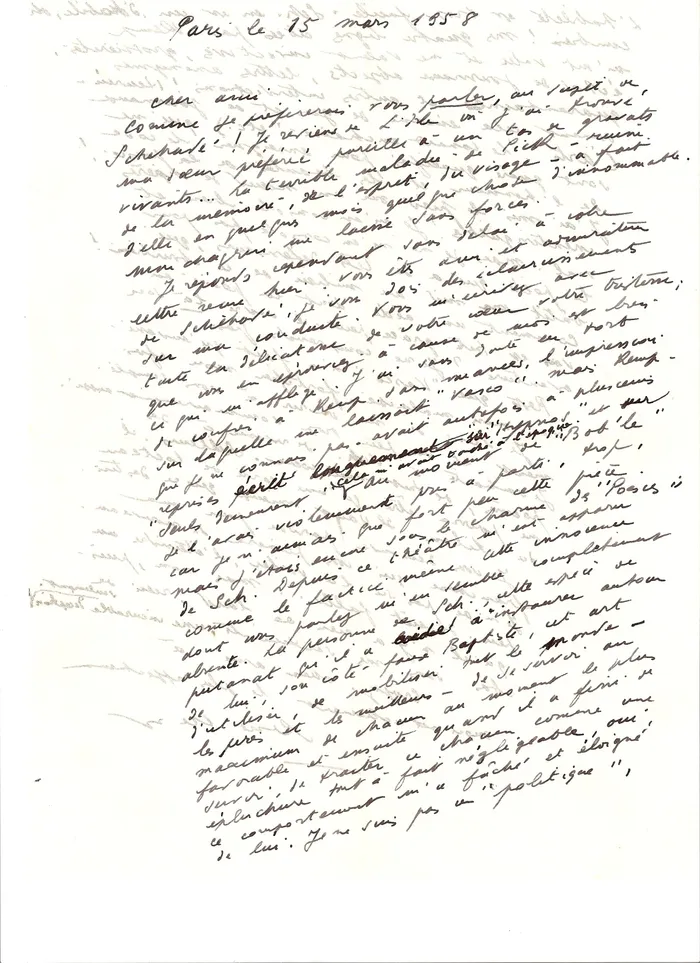 Paris le 15 mars 1958
cher ami
Comme je préférerais vous parler, au sujet de
Schehadé ! Je reviens de L'Isle où j'ai trouvé,
ma sœur préférée pareille à un tas de gravats
vivants... La terrible maladie de Pick - ruine
de la mémoire, de l'esprit, du visage - a fait
d'elle en quelques mois quelque chose d'innommable.
Mon chagrin me laisse sans forces.
Je réponds cependant sans délai à votre
lettre reçue hier. Vous êtes ami et admirateur
de Schéhadé, je vous dois des éclaircissements
sur ma conduite. Vous m'écrivez avec
toute la délicatesse de votre cœur votre tristesse ;
que vous en éprouviez à cause de moi est bien
ce qui m'afflige. J'ai sans doute eu tort
de confier à Kemp, sans nuances, l'impression
sur laquelle me laissait "Vasco". Mais Kemp -
que je ne connais pas - avait autefois à plusieurs
reprises écrit longuement sur "Hypnos" et sur
"Seuls demeurent", cela m'avait touché à l'époque
Au moment de "Bob'le"
je l'avais violemment pris à parti, trop,
car je n'aimais que fort peu cette pièce
mais j'étais encore sous le charme de "Poésies"
de Sch. Depuis ce théâtre m'est apparu
comme le factice même. Cette innocence
dont vous parlez m'en semble complètement
absente. La personne de Sch., cette espèce de
putanat qu'il a à instaurer autour
de lui, son côté faux Baptiste, cet art
d'utiliser, de mobiliser tout le monde -
les pires et les meilleurs - de se servir au
maximum de chacun au moment le plus
favorable et ensuite quand il a fini de
servir, de traiter ce chacun comme une
épluchure tout à fait négligeable, oui,
ce comportement m'a fâché et éloigné
de lui. Je ne suis pas un "politique",